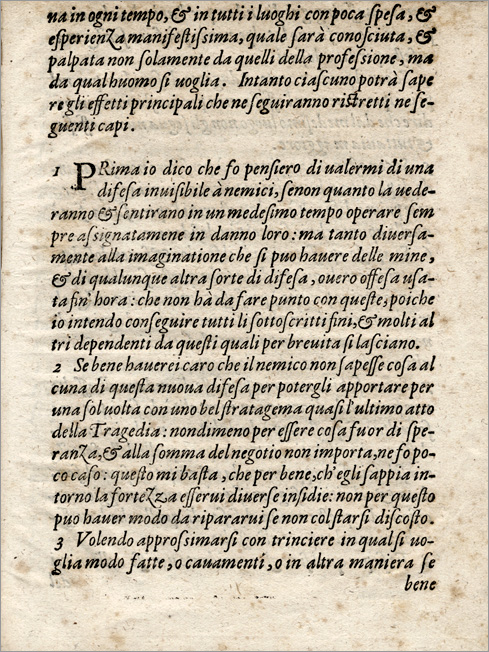 na in ogni tempo, & in tutti i luoghi con poca spesa, &
esperienza manifestissima, quale sarà conosciuta, &
palpata non solamente da quelli della professione, ma
da qual huomo si uoglia. Intanto ciascuno potrà sape
re gli effetti principali che ne seguiranno ristretti ne se-
guenti capi.
1 PRima io dico che fo pensiero di ualermi di una
difesa inuisibile à nemici, se non quanto la uede-
ranno & sentirano in un medesimo tempo operare sem
pre assignatamene in danno loro: ma tanto diuersa-
mente alla imaginatione che si puo hauere delle mine,
& di qualunque altra sorte di difesa, ouero offesa usa-
ta fin' hora: che non hà da fare punto con queste, poiche
io intendo conseguire tutti li sottoscritti fini, & molti al
tri dependenti da questi quali per breuita si lasciano.
2 Se bene hauerei caro che il nemico non sapesse cosa al
cuna di questa nuoua difesa per potergli apportare per
una sol uolta con uno bel stratagema quasi l'ultimo atto
della Tragedia: nondimeno per essere cosa fuor di spe-
ranza, & alla somma del negotio non importa, ne fo po-
co caso: questo mi basta, che per bene, ch'egli sappia in-
torno la fortezza esserui diuerse insidie: non per questo
puo hauer modo da ripararui se non col starsi discosto.
3 Volendo approssimarsi con trinciere in qual si uo-
glia modo fatte, o cauamenti, o in altra maniera se
bene